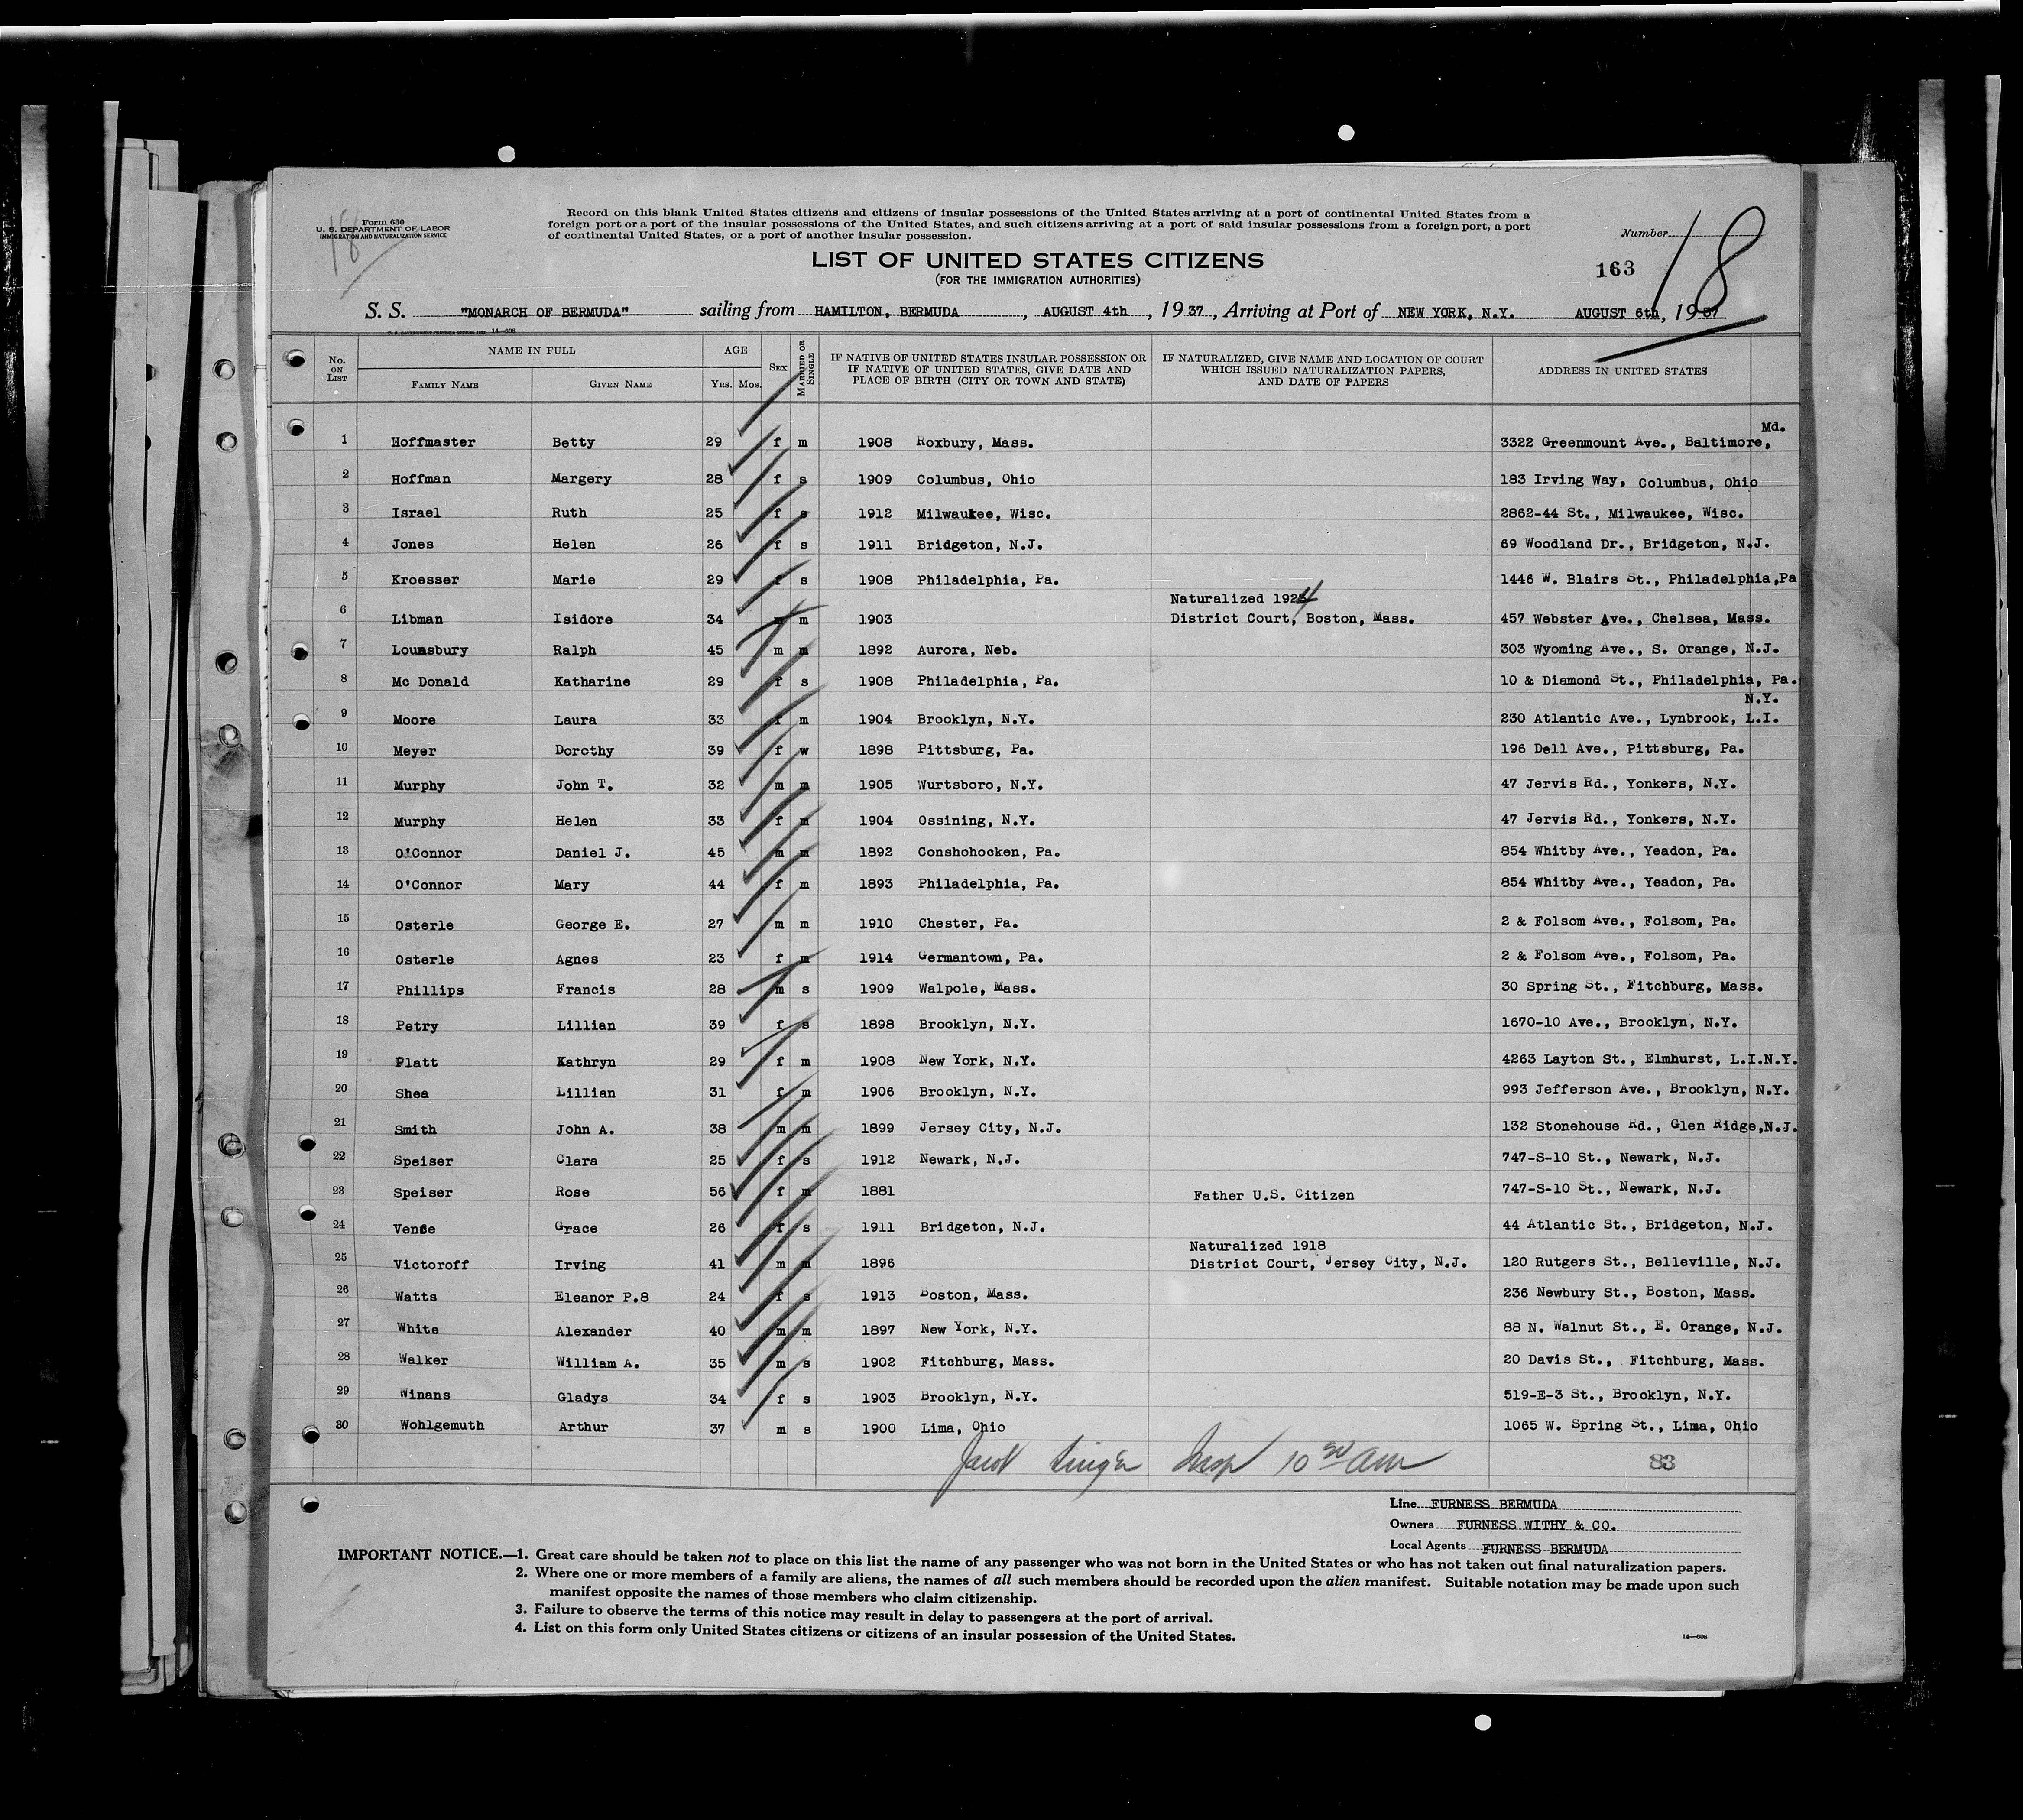 18
Form 630
U. S. DEPARTMENT OF LABOR
IMMIGRATION AND NATURALIZATION SERVICE
Record on this blank United States citizens and citizens of insular possessions of the United States arriving at a port of continental United States from a
foreign port or a port of the insular possessions of the United States, and such citizens arriving at a port of said insular possessions from a foreign port, a port
of continental United States, or a port of another insular possession.
Number 18
163
LIST OF UNITED STATES CITIZENS
(FOR THE IMMIGRATION AUTHORITIES)
S. S. "MONARCH OF BERMUDA" sailing from HAMILTON, BERMUDA, AUGUST 4th, 1937, Arriving at Port of NEW YORK, N.Y. AUGUST 6th, 1937
14—608
No. ON LIST NAME IN FULL FAMILY NAME GIVEN NAME AGE YRS. MOS. SEX MARRIED OR SINGLE IF NATIVE OF UNITED STATES INSULAR POSSESSION OR IF NATIVE OF UNITED STATES, GIVE DATE AND PLACE OF BIRTH (CITY OR TOWN AND STATE) IF NATURALIZED, GIVE NAME AND LOCATION OF COURT WHICH ISSUED NATURALIZATION PAPERS, AND DATE OF PAPERS ADDRESS IN UNITED STATES
1 Hoffmaster Betty 29 f m 1908 Roxbury, Mass. 3322 Greenmount Ave., Baltimore, Md.
2 Hoffman Margery 28 f s 1909 Columbus, Ohio 183 Irving Way, Columbus, Ohio
3 Israel Ruth 25 f s 1912 Milwaukee, Wisc. 2862-44 St., Milwaukee, Wisc.
4 Jones Helen 26 f s 1911 Bridgeton, N.J. 69 Woodland Dr., Bridgeton, N.J.
5 Kroesser Marie 29 f s 1908 Philadelphia, Pa. 1446 W. Blairs St., Philadelphia,Pa
Naturalized 1924
6 Libman Isidore 34 m m 1903 District Court, Boston, Mass. 457 Webster Ave., Chelsea, Mass.
7 Lounsbury Ralph 45 m m 1892 Aurora, Neb. 303 Wyoming Ave., S. Orange, N.J.
8 Mc Donald Katharine 29 f s 1908 Philadelphia, Pa. 10 & Diamond St., Philadelphia, Pa.
N.Y.
9 Moore Laura 33 f m 1904 Brooklyn, N.Y. 230 Atlantic Ave., Lynbrook, L.I.
10 Meyer Dorothy 39 f w 1898 Pittsburg, Pa. 196 Dell Ave., Pittsburg, Pa.
11 Murphy John T. 32 m m 1905 Wurtsboro, N.Y. 47 Jervis Rd., Yonkers, N.Y.
12 Murphy Helen 33 f m 1904 Ossining, N.Y. 47 Jervis Rd., Yonkers, N.Y.
13 O'Connor Daniel J. 45 m m 1892 Conshohocken, Pa. 854 Whitby Ave., Yeadon, Pa.
14 O'Connor Mary 44 f m 1893 Philadelphia, Pa. 854 Whitby Ave., Yeadon, Pa.
15 Osterle George E. 27 m m 1910 Chester, Pa. 2 & Folsom Ave., Folsom, Pa.
16 Osterle Agnes 23 f m 1914 Germantown, Pa. 2 & Folsom Ave., Folsom, Pa.
17 Phillips Francis 28 m s 1909 Walpole, Mass. 30 Spring St., Fitchburg, Mass.
18 Petry Lillian 39 f s 1898 Brooklyn, N.Y. 1670-10 Ave., Brooklyn, N.Y.
19 Platt Kathryn 29 f m 1908 New York, N.Y. 4263 Layton St., Elmhurst, L.I.N.Y.
20 Shea Lillian 31 f m 1906 Brooklyn, N.Y. 993 Jefferson Ave., Brooklyn, N.Y.
21 Smith John A. 38 m m 1899 Jersey City, N.J. 132 Stonehouse Rd., Glen Ridge,N.J.
22 Speiser Clara 25 f s 1912 Newark, N.J. 747-S-10 St., Newark, N.J.
23 Speiser Rose 56 f m 1881 Father U.S. Citizen 747-S-10 St., Newark, N.J.
24 Grace 26 f s 1911 Bridgeton, N.J. 44 Atlantic St., Bridgeton, N.J.
Naturalized 1918
25 Victoroff Irving 41 m m 1896 District Court, Jersey City, N.J. 120 Rutgers St., Belleville, N.J.
26 Watts Eleanor P.8 24 f s 1913 Boston, Mass. 236 Newbury St., Boston, Mass.
27 White Alexander 40 m m 1897 New York, N.Y. 88 N. Walnut St., E. Orange, N.J.
28 Walker William A. 35 m s 1902 Fitchburg, Mass. 20 Davis St., Fitchburg, Mass.
29 Winans Gladys 34 f s 1903 Brooklyn, N.Y. 519-E-3 St., Brooklyn, N.Y.
30 Wohlgemuth Arthur 37 m s 1900 Lima, Ohio 1065 W. Spring St., Lima, Ohio
Insp 10 am 83
Line FURNESS BERMUDA
Owners FURNESS WITHY & CO.
Local Agents FURNESS BERMUDA
IMPORTANT NOTICE.—1. Great care should be taken not to place on this list the name of any passenger who was not born in the United States or who has not taken out final naturalization papers.
2. Where one or more members of a family are aliens, the names of all such members should be recorded upon the alien manifest. Suitable notation may be made upon such
manifest opposite the names of those members who claim citizenship.
3. Failure to observe the terms of this notice may result in delay to passengers at the port of arrival.
4. List on this form only United States citizens or citizens of an insular possession of the United States.
14—608